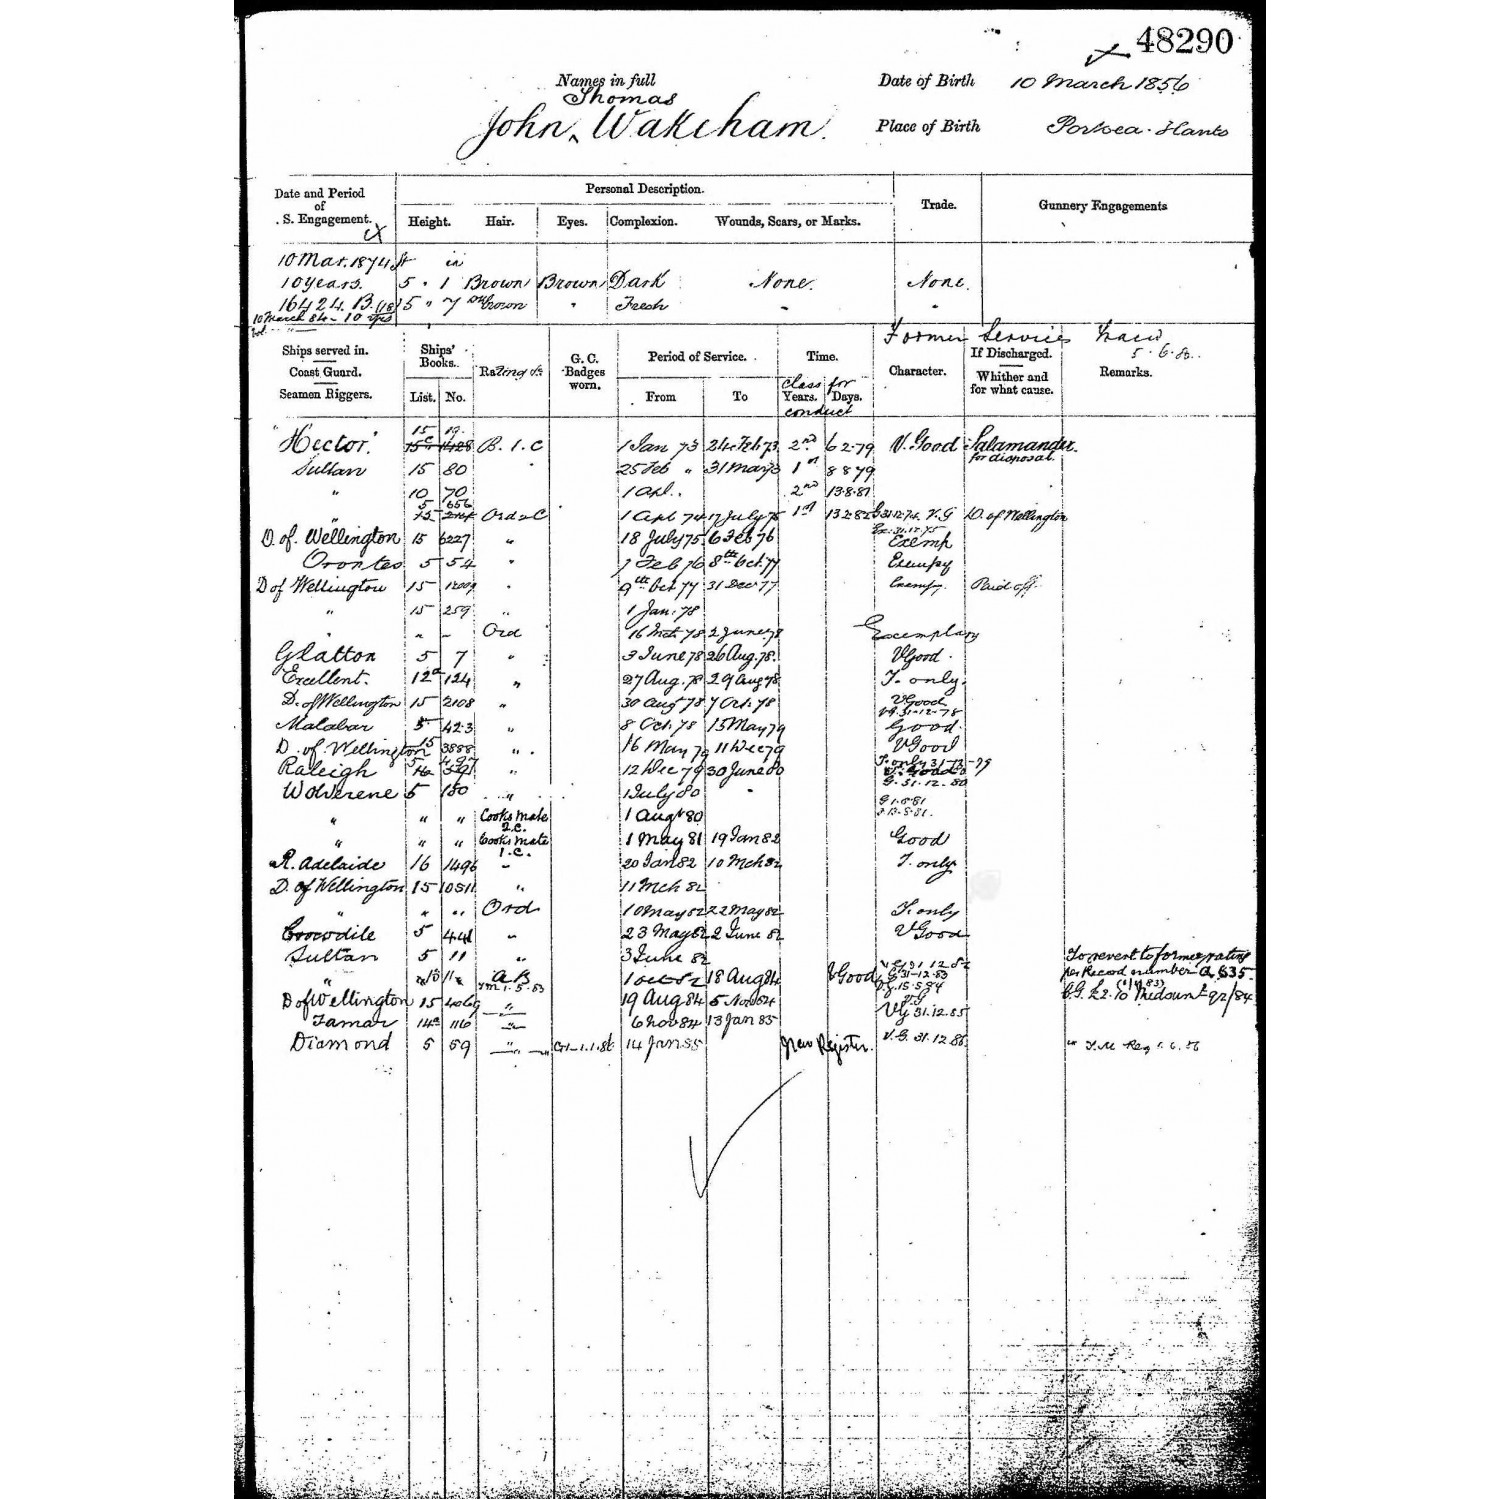 48290
Names in full
Thomas
John Wakeham
Date of Birth 10 March 1856
Place of Birth Portsea. Hants
Date and Period of S. Engagement.
Personal Description.
Height. Hair. Eyes. Complexion. Wounds, Scars, or Marks.
Trade.
Gunnery Engagements
10 Mar. 1874 ft in
10 years. 5 . 1 Brown Brown Dark None. None.
16424. B. 5 " 7 Dk Brown " Fresh - "
10 March 84 - 10 yrs
Former Service
5.6.80.
Ships served in.
Coast Guard.
Seamen Riggers.
Ships' Books. List. No.
Rating &c
G. C. Badges worn.
Period of Service. From To
Time. Years. Days.
class for conduct
Character.
If Discharged. Whither and for what cause.
Remarks.
15 19.
Hector. 15c 1428 B. 1. C 1 Jan 73 24 Feb 73 2nd 6 2.79 V. Good Salamander for disposal.
Sultan 15 80 " 25 Feb " 31 Mar 73 1st 8 8 79
" 10 70 1 Apl.. 2nd 13.8.81
5 656
" 15 Ord 2 C 1 Apl 74 17 July 75 1st 13 2 82 31.12.74 V.G D. of Wellington
Ex. 31.12.75
D. of Wellington 15 6227 " 18 July 75 6 Feb 76 Exemp
Orontes 5 54 " 7 Feb 76 8th Oct. 77 Exempy
D of Wellington 15 " 9th Oct 77 31 Dec 77 Exempy. Paid off.
" 15 259 " 1 Jan. 78
" " " Ord 16 Mch 78 2 June 78 Exemplary
Glatton 5 7 " 3 June 78 26 Aug. 78. V Good.
Excellent. 12a 124 " 27 Aug. 78 29 Aug 78 T. only.
D. of Wellington 15 2108 " 30 Aug 78 7 Oct. 78 V Good
V.G. 31-12-78
Malabar 5 423 " 8 Oct. 78 15 May 79 Good.
D. of Wellington 15 3888 " 16 May 79 11 Dec 79 V Good
T. only 31-12-79
Raleigh 5 " 12 Dec 79 30 June 80 V. Good
G. 31.12.80
Wolverene 5 150 " 1 July 80 "
" " " Cooks mate 2.C. 1 Augt 80
" " " Cooks mate 1.C. 1 May 81 19 Jan 82 Good
R. Adelaide 16 1496 " 20 Jan 82 10 Mch 82 T. only
D. of Wellington 15 10511 " 11 Mch 82
" " " Ord 10 May 82 22 May 82 T. only
Crocodile 5 441 " 23 May 82 2 June 82 V Good
Sultan 5 11 " 3 June 82 V.G 31.12.82 To revert to former rating
" A B 1 Oct 82 18 Aug 84 V Good G 31-12-83 per Record number
1.5.83 V.G. 15.5.84
D of Wellington 15 " 19 Aug 84 5 Nov 84 V.G
Tamar 14a 116 " 6 Nov 84 13 Jan 85 V.G 31.12.85
Diamond 5 59 " G 1 - 1.1.86 14 Jan 85 New Register. V.G. 31.12.86